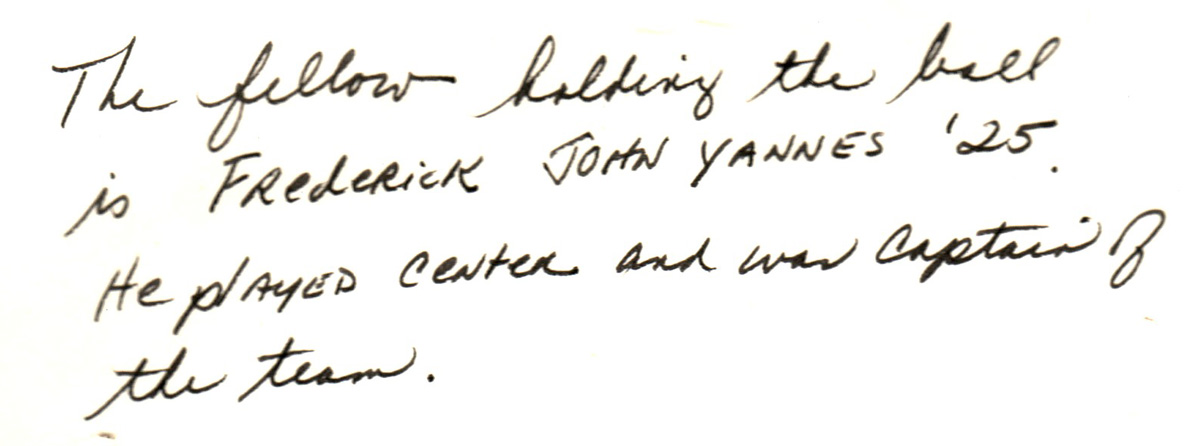 The fellow holding the ball
is FREDERICK JOHN YANNES '25.
He plAYED center and was Captain of
the team.